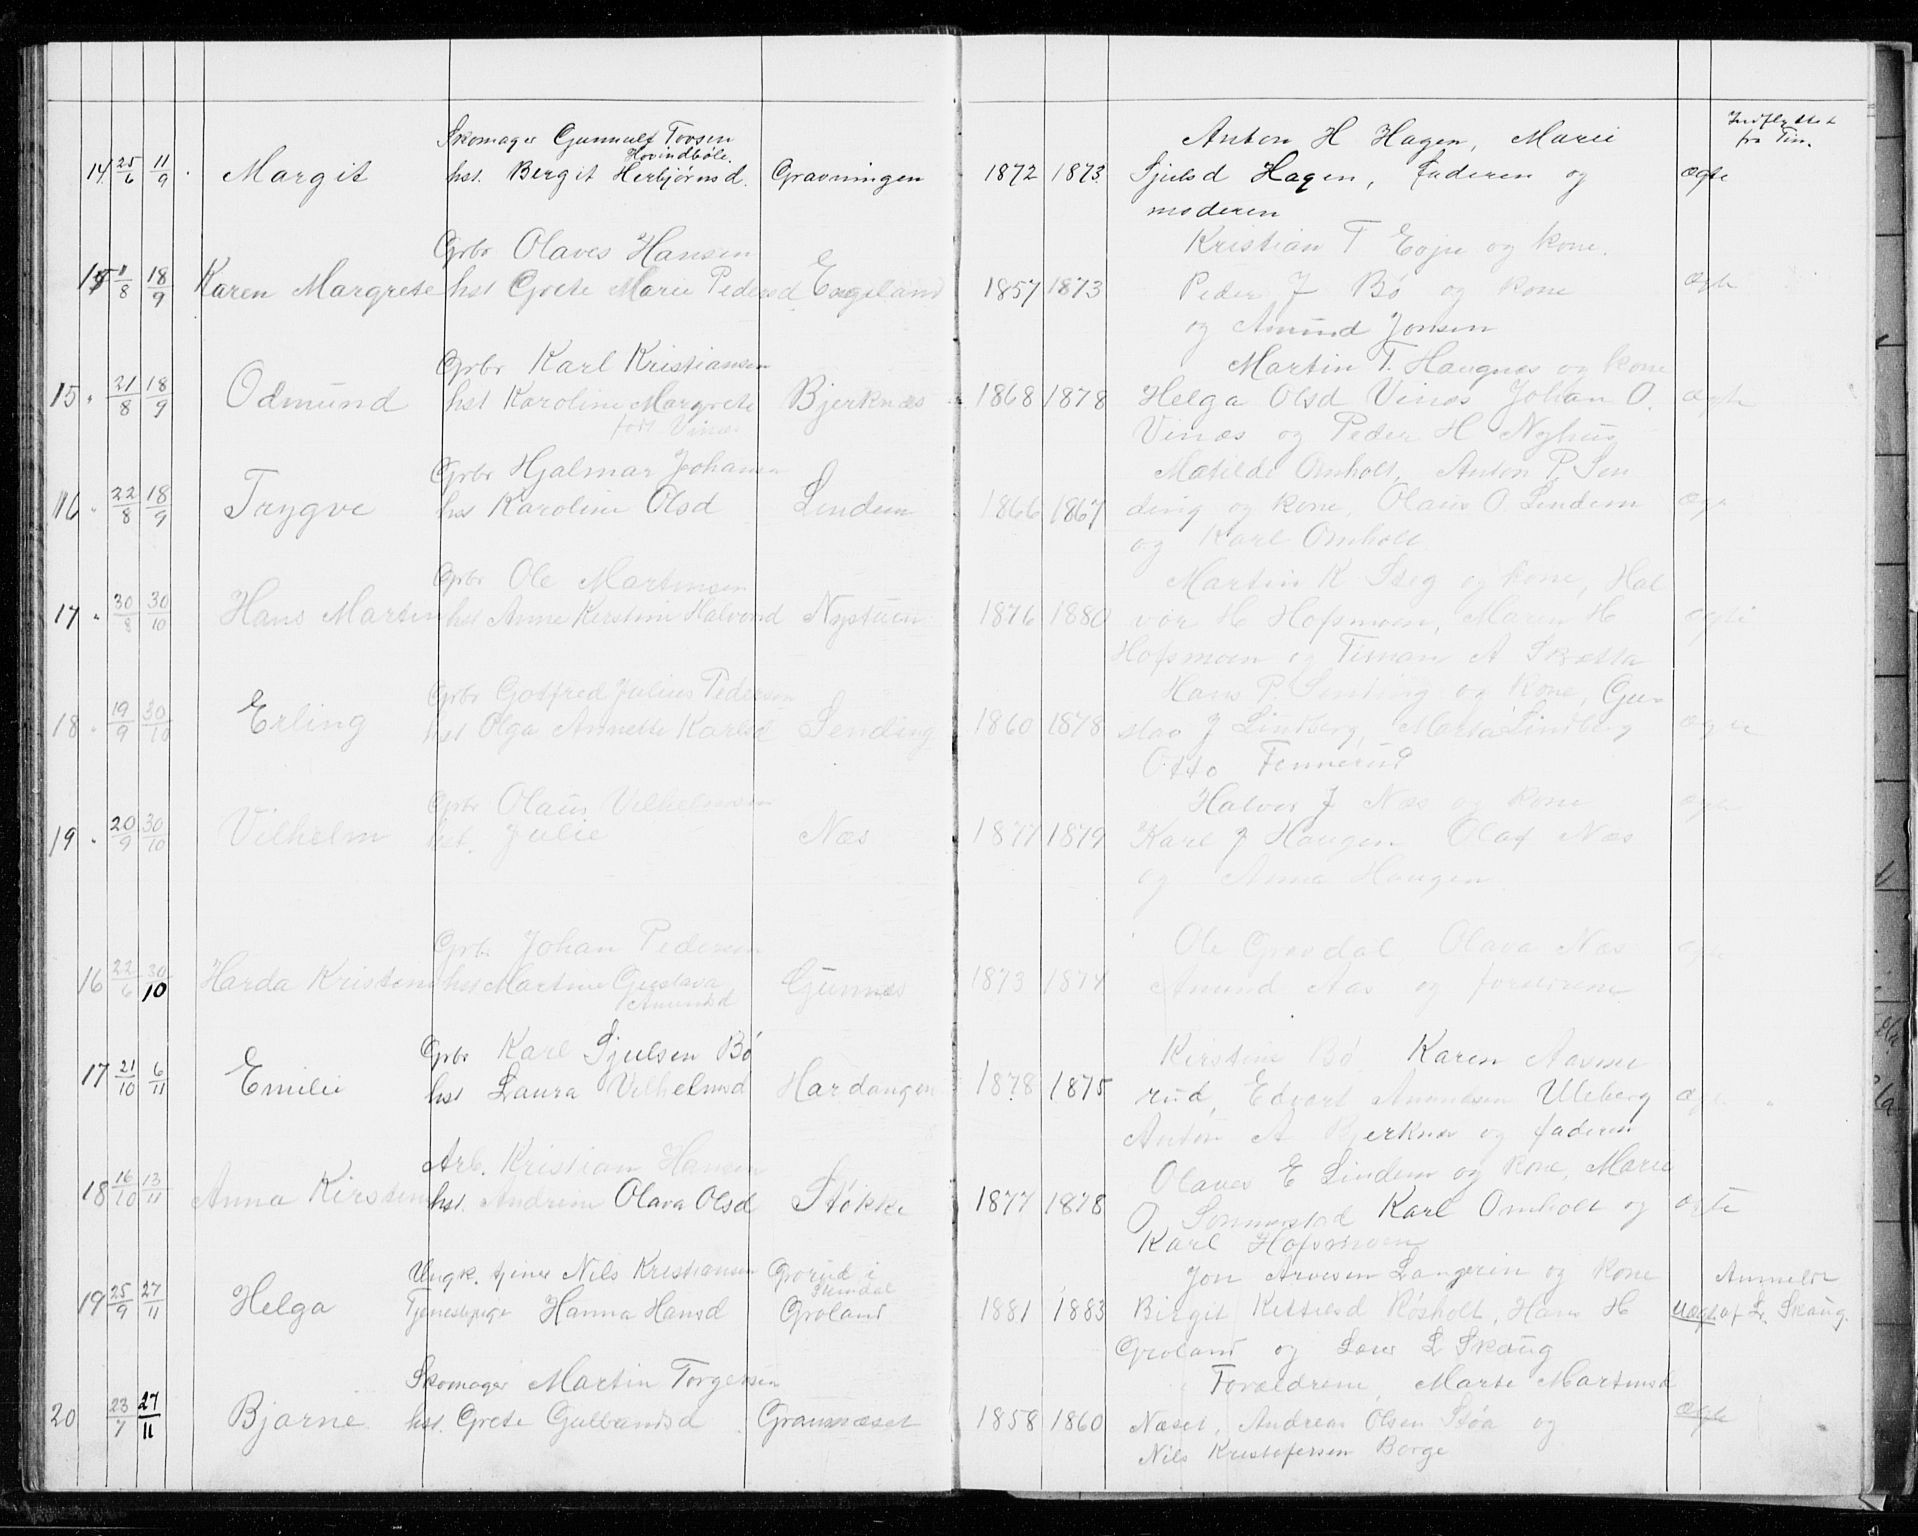 Skomager Gunnulf Tovsen
Hovindbøle.
14. 25/6 11/9 Margit hst. Bergit Herbjørnsd. Gravningen 1872 1873 Anton H Hagen, Marie
Sjulsd Hagen, faderen og
moderen
ægte Indflyttet
fra Tin.
Grbr Olaves Hansen
15 1/8 18/9 Karen Margrete hst Grete Marie Pedersd Engeland 1857 1873 Kristian T Eojne og kone.
Peder J Bø og kone
og Amund Jonsen
ægte
Grbr Karl Kristiansen
15. 21/8 18/9 Odmund hst Karoline Margrete
født Vinæs
Bjerknæs 1868 1878 Martin T. Haugnæs og kone
Helga Olsd Vinæs Johan O.
Vinæs og Peder H Nyhus
ægte
Grbr Hjalmar Johansen
16. 22/8 18/9 Trygve hst Karoline Olsd Lindem 1866 1867 Matilde Omholt, Anton P. Sen
ding og kone, Olaus O. Lindem
og Karl Omholt
ægte
Grbr Ole Martinsen
17. 30/8 30/10 Hans Martin hst Anne Kirstine Halvorsd Nystuen 1876 1880 Martin K Steg og kone, Hal
vor H Hofsmoen, Maren H
Hofsmoen og Timan A Skætta
ægte
Grbr Gotfred Julius Pedersen
18. 19/9 30/10 Erling hst Olga Annette Karlsd Sending 1860 1878 Hans P. Sending og kone, Gu-
stav J Lindberg, Marta Lindberg
Otto Fennerud
ægte
Grbr Olaus Vilhelmsen
19. 20/9 30/10 Vilhelm hst. Julie Næs 1877 1879 Halvor J Næs og kone
Karl J Haugen Olaf Næs
og Anna Haugen.
ægte
Grbr Johan Pedersen
16 22/6 30/10 Harda Kristine hst Martine Gustava
Amundsd
Gunnæs 1873 1874 Ole Gravdal Olava Næs
Amund Aas og forældrene
ægte
Grbr Karl Sjulsen Bø
17 21/10 6/11 Emilie hst Laura Vilhelmsd Hardangen 1878 1875 Kirstine Bø Karen Aasme
rud, Edvart Amundsen Uleberg
Anton A Bjerknæs og faderen
ægte
Arb. Kristian Hansen
18 16/10 13/11 Anna Kirstine hst. Andrine Olava Olsd Støkke 1877 1878 Olaves E Lindem og kone, Marie
O Sønnerstad Karl Omholt og
Karl Hofsmoen
ægte
Ungk. tjener Nils Kristiansen Grorud i
19 25/9 27/11 Helga Tjenestepige Hanna Hansd Groland 1881 1883 Jon Arvesen Langerin og kone
Birgit Kittelsd Røsholt, Hans H
Groland og Lars L Skaug
uægte Anmeldt
af L. Skaug.
Skomager Martin Torgersen
20 23/7 27/11 Bjarne hst. Grete Gulbrandsd Grannæset 1858 1860 Forældrene, Marte Martinsd
Næset, Andreas Olsen Støa og
Nils Kristofersen Borge
ægte